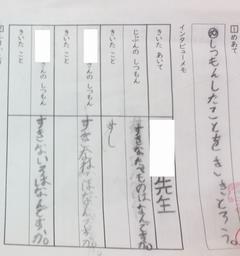 1 めあて
しつもんしたことを きこう。
インタビューメモ
きいた あいて
先生
じぶんの しつもん
すきなたべものはなんですか。
きいた こと
すし
さんの しつもん
すきな
はなんですか。
きいた こと
さんの しつもん
すきないろはなんですか。
きいた こと